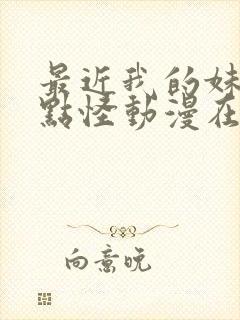 最近我的妹
點怪動漫在
向意晚